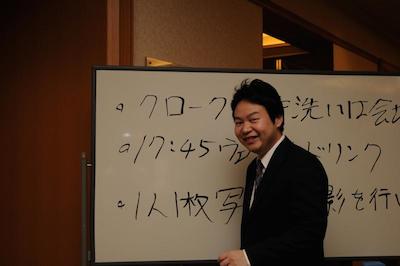 。クローク 洗いは会場
。17:45 ドリンク
。1人1枚写 影を行い